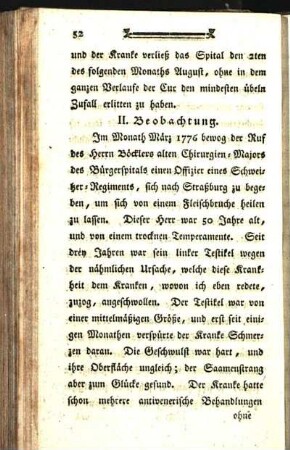 52
und der Kranke verließ das Spital den 2ten
des folgenden Monaths August, ohne in dem
ganzen Verlaufe der Cur den mindesten übeln
Zufall erlitten zu haben.
II. Beobachtung.
Im Monath März 1776 bewog der Ruf
des Herrn Böcklers alten Chirurgien-Majors
des Bürgerspitals einen Offizier eines Schwei-
tzer-Regiments, sich nach Straßburg zu bege-
ben, um sich von einem Fleischbruche heilen
zu lassen. Dieser Herr war 50 Jahre alt,
und von einem trocknen Temperamente. Seit
drey Jahren war sein linker Testikel wegen
der nähmlichen Ursache, welche diese Krank-
heit dem Kranken, wovon ich eben redete,
zuzog, angeschwollen. Der Testikel war von
einer mittelmäßigen Größe, und erst seit eini-
gen Monathen verspürte der Kranke Schmer-
zen daran. Die Geschwulst war hart, und
ihre Oberfläche ungleich; der Saamenstrang
aber zum Glücke gesund. Der Kranke hatte
schon mehrere antivenerische Behandlungen
ohne